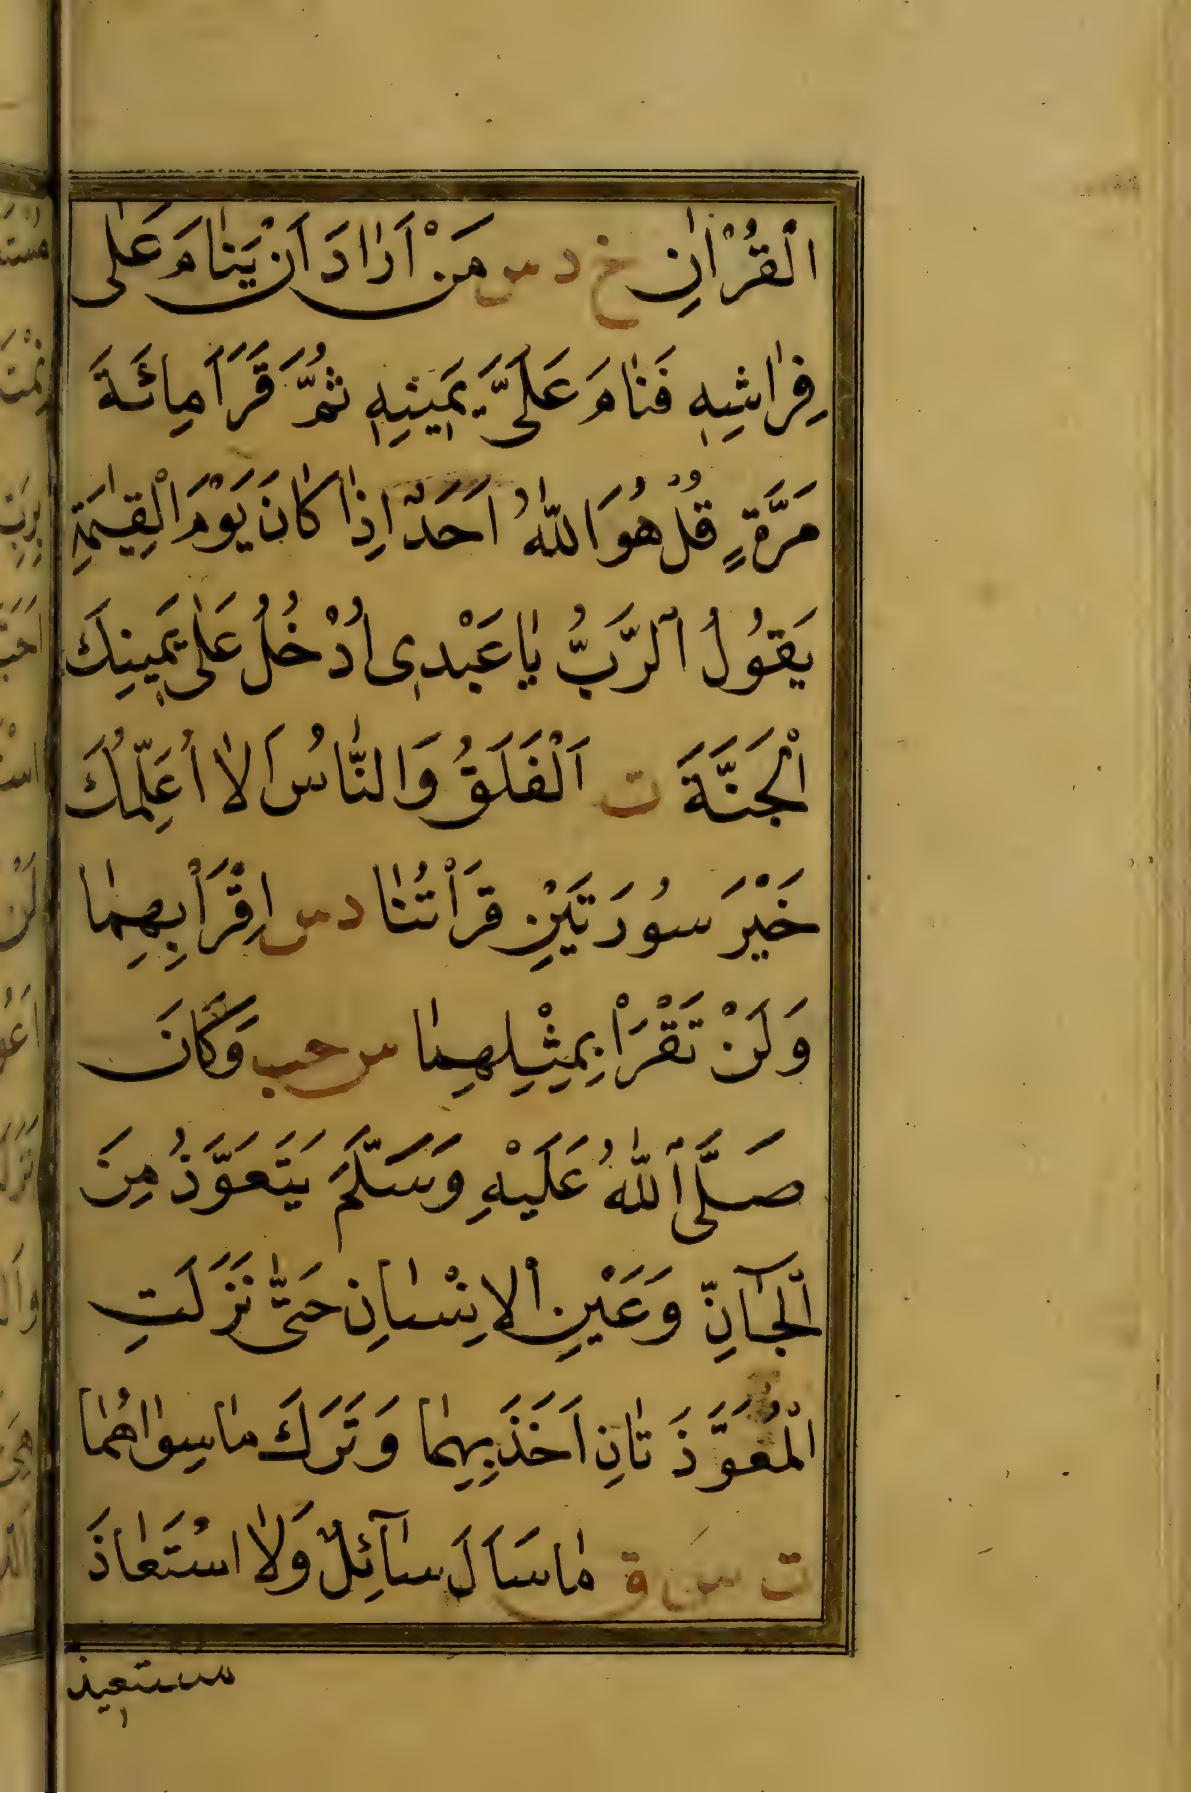 الْقُرْاٰنِ خ د س مَنْ اَرَادَ اَنْ يَنَامَ عَلٰى
فِرَاشِهٖ فَنَامَ عَلٰى يَمٖينِهٖ ثُمَّ قَرَاَ مِائَةَ
مَرَّةٍ قُلْ هُوَ اللّٰهُ اَحَدٌ اِذَا كَانَ يَوْمَ الْقِيٰمَةِ
يَقُولُ الرَّبُّ يَا عَبْدٖى اُدْخُلْ عَلٰى يَمٖينِكَ
الْجَنَّةَ ت اَلْفَلَقُ وَالنَّاسُ اَلَا اُعَلِّمُكَ
خَيْرَ سُورَتَيْنِ قُرِأَتَا د س اِقْرَأْ بِهِمَا
وَلَنْ تَقْرَأَ بِمِثْلِهِمَا س حب وَكَانَ
صَلَّى اللّٰهُ عَلَيْهِ وَسَلَّمَ يَتَعَوَّذُ مِنَ
الْجَآنِّ وَعَيْنِ الْاِنْسَانِ حَتّٰى نَزَلَتِ
الْمُعَوَّذَتَانِ اَخَذَ بِهِمَا وَتَرَكَ مَا سِوَاهُمَا
ت س ق مَا سَاَلَ سَآئِلٌ وَلَا اسْتَعَاذَ
مستعيذ